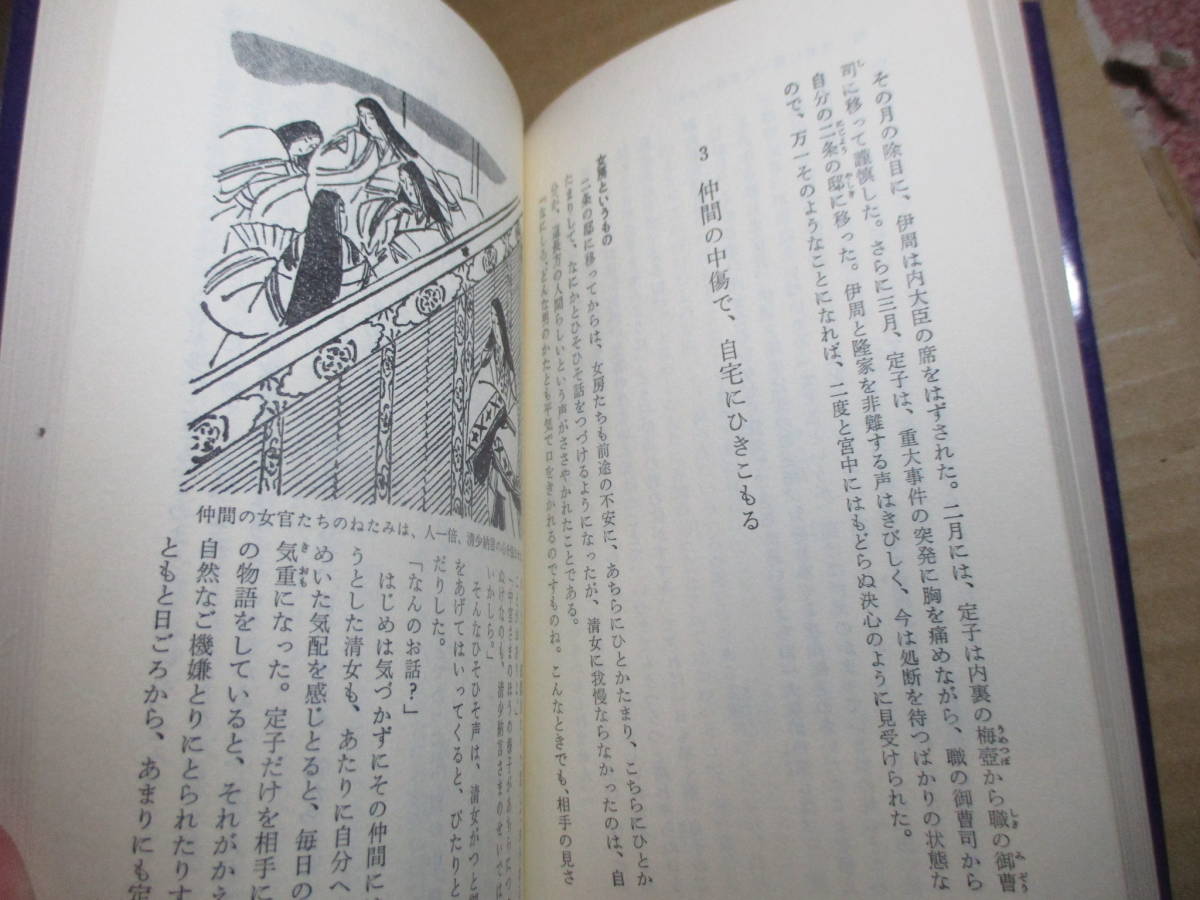 その月の除目に、伊周は内大臣の席をはずされた。二月には、定子は内裏の梅壺から職の御曹
司に移って謹慎した。さらに三月、定子は、重大事件の突発に胸を痛めながら、職の御曹司から
自分の二条の邸に移った。伊周と隆家を非難する声はきびしく、今は処断を待つばかりの状態な
ので、万一そのようなことになれば、二度と宮中にはもどらぬ決心のように見受けられた。
3 仲間の中傷で、自宅にひきこもる
女房というもの
二条の邸に移ってからは、女房たちも前途の不安に、あちらにひとかたまり、こちらにひとか
たまりして、なにかとひそひそ話をつづけるようになったが、清女に我慢ならなかったのは、自
分が、道長方の人間らしいという声がささやかれたことである。
「なにしろ、どんな男のかたとも平気で口をきかれるのですものね。こんなときでも、相手の見さ
仲間の女官たちのねたみは、人一倍、清少納言の
「中宮さまのほうの様子があちらにつ
ぬけなのも、清少納言さまのせいでは
いかしら。」
そんなひそひそ声は、清女がつと
をあげてはいってくると、ぴたりと
だりした。
「なんのお話?」
はじめは気づかずにその仲間に
うとした清女も、あたりに自分へ
めいた気配を感じとると、毎日の
気重になった。定子だけを相手に
の物語をしていると、それがかえ
自然なご機嫌とりにとられたりす
ともと日ごろから、あまりにも定